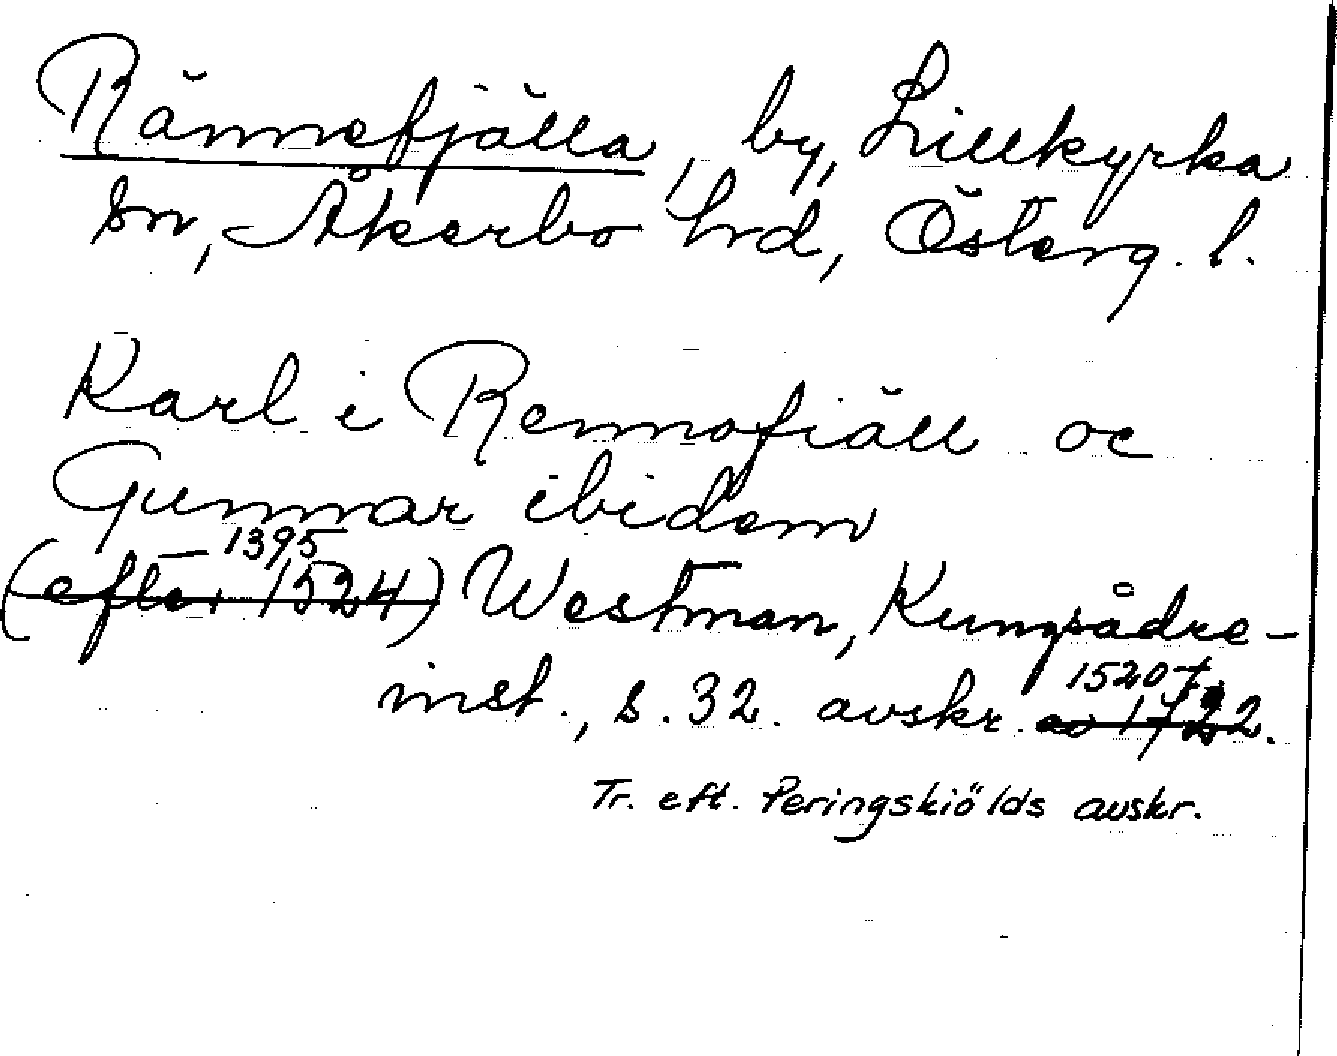 Rännefjälla, by, Lillkyrka
sn, Åkerbo hrd, Österg. l.
Karl i Rennofiäll oc
Gunnar ibidem
— 1395
(efter 1524) Westman, Kungsådre-
inst., s. 32. avskr.
1520-t.
Tr. eft. Peringskiölds avskr.